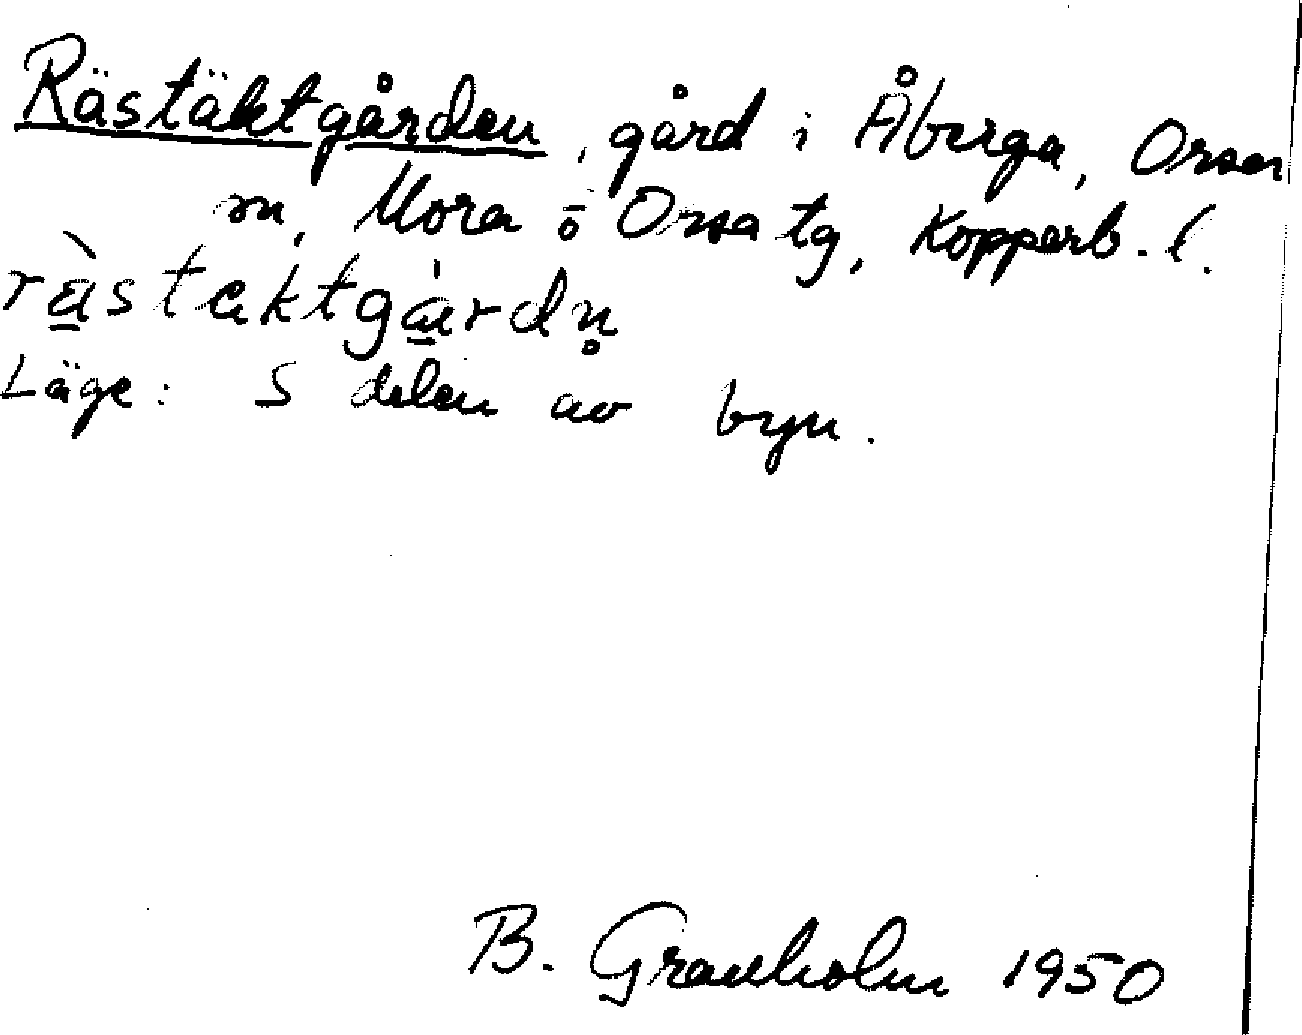 Rästäktgården, gård i Åberga, Orsa
sn, Mora o Orsa tg, Kopparb. l.
rà̱staktgá̱rdn̥
Läge: S delen av byn.
B. Granholm 1950